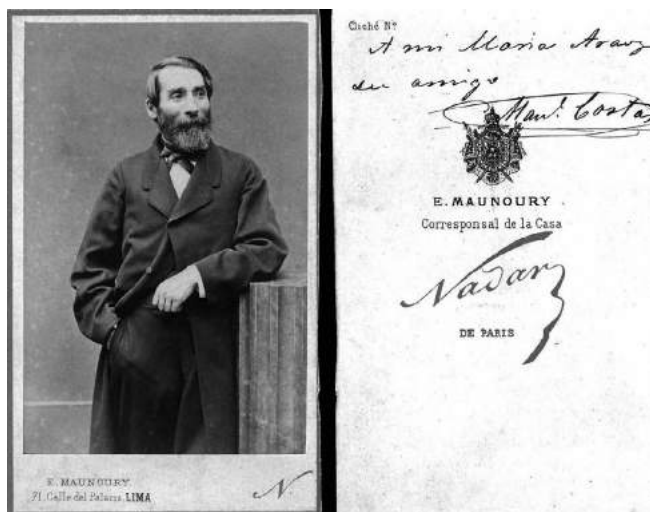 E. MAUNOURY
71, Calle del Palacio, LIMA
N
Cliché Nº
A mi Maria Arauz
su amigo
Manl. Costas
E. MAUNOURY
Corresponsal de la Casa
Nadar
DE PARIS